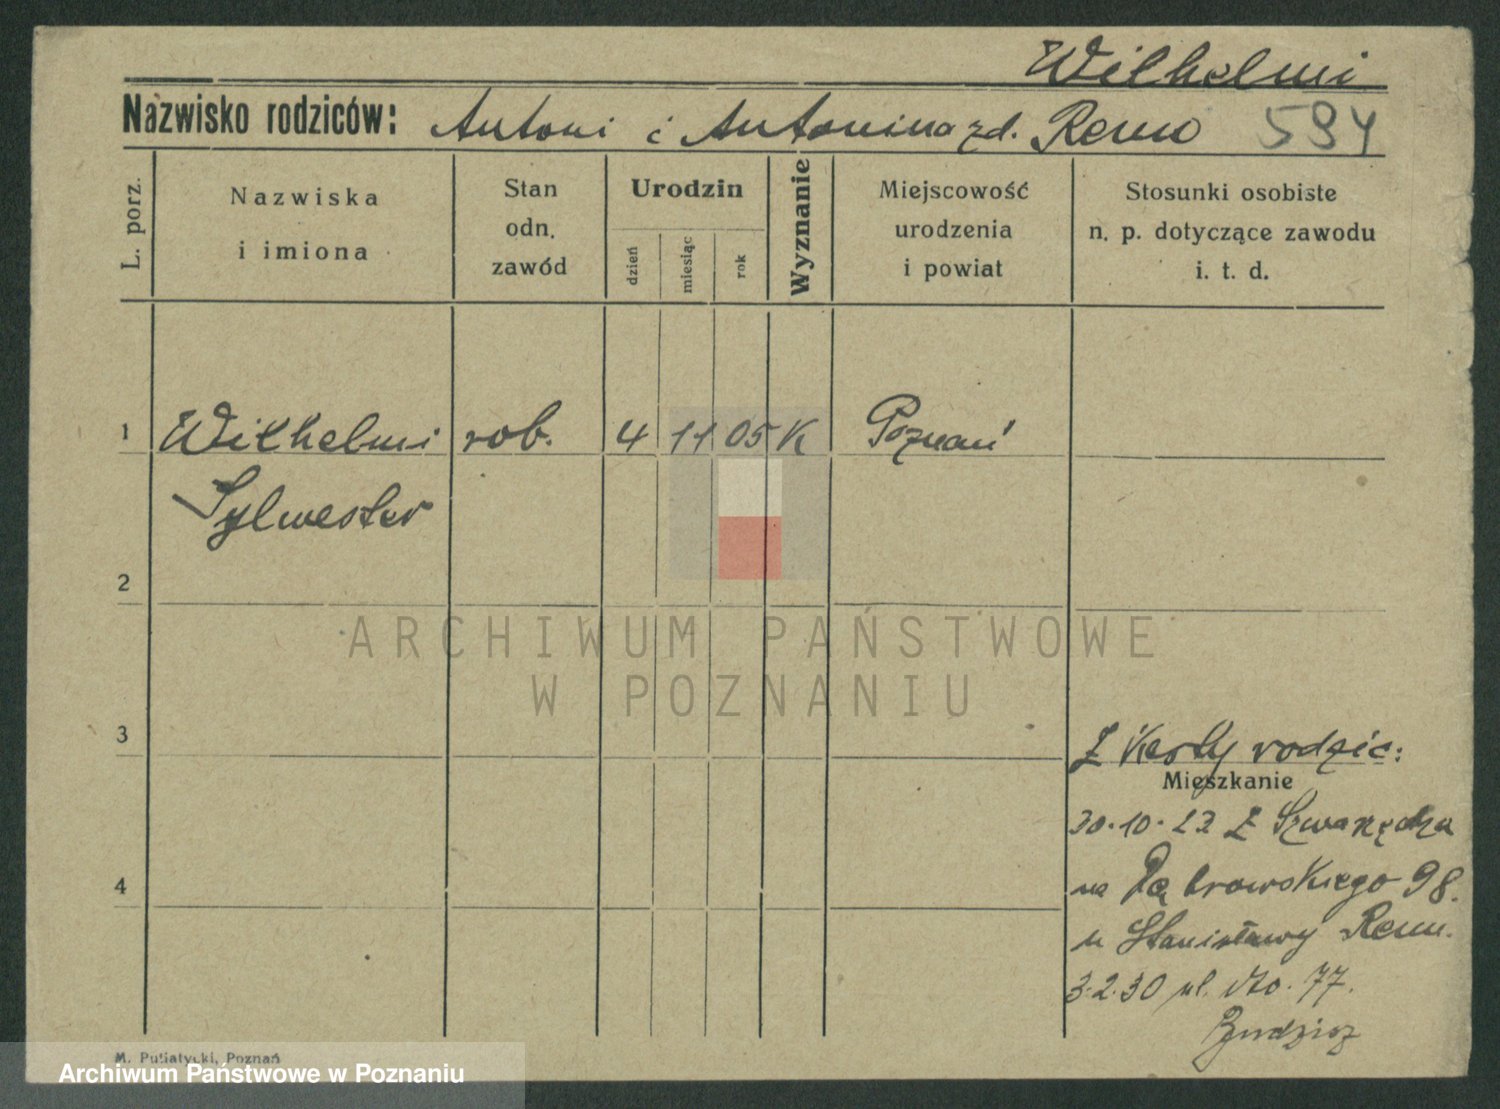 Wilhelmi
Nazwisko rodziców: Antoni i Antonina zd. Renn 594
L. porz.
Nazwiska
i imiona
Stan
odn.
zawód
Urodzin
dzień
miesiąc
rok
Wyznanie
Miejscowość
urodzenia
i powiat
Stosunki osobiste
n. p. dotyczące zawodu
i. t. d.
1 Wilhelmi rob. 4 11 05 K Poznań
Sylwester
2
ARCHIWUM PAŃSTWOWE
W POZNANIU
3
Z Karty rodzic:
Mieszkanie
30.10.23 Z Swarzędza
4
na Dąbrowskiego 98.
u Stanisławy Renn.
3.2.30 ul. dto. 77.
M. Putiatycki, Poznań
Archiwum Państwowe w Poznaniu